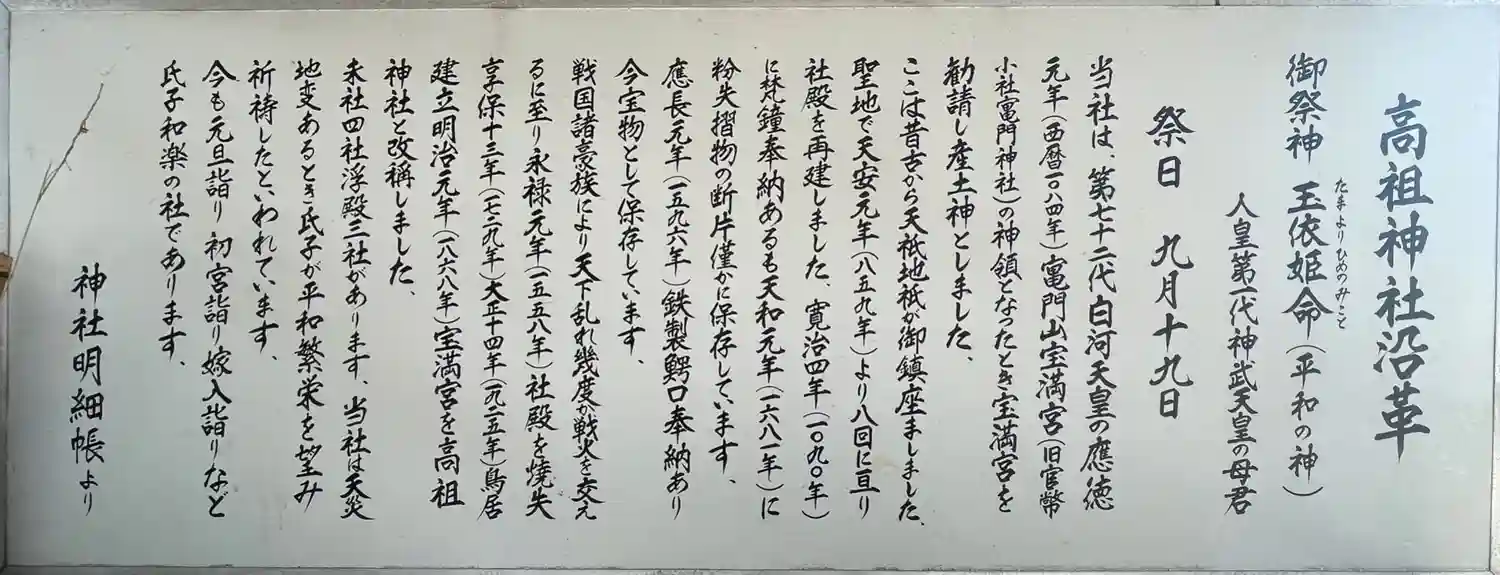 高祖神社沿革
御祭神 玉依姫命(平和の神)
たまよりひめのみこと
人皇第一代神武天皇の母君
祭日 九月十九日
当社は、第七十二代白河天皇の應徳
元年(西暦一〇八四年)竃門山宝満宮(旧官幣
小社竃門神社)の神領となったとき宝満宮を
勧請し産土神としました、
ここは昔古から天祇地祇が御鎮座ましました、
聖地で天安元年(八五九年)より八回に亘り
社殿を再建しました、寛治四年(一〇九〇年)
に梵鐘奉納あるも天和元年(一六八一年)に
粉失摺物の断片僅かに保存しています、
應長元年(一五九六年)鉄製鰐口奉納あり
今宝物として保存しています、
戦国諸豪族により天下乱れ幾度か戦火を交え
るに至り永禄元年(一五五八年)社殿を焼失
享保十三年(一七二九年)大正十四年(一九二五年)鳥居
建立明治元年(一八六八年)宝満宮を高祖
神社と改稱しました、
末社四社浮殿三社があります、当社は天災
地変あるとき氏子が平和繁栄を望み
祈祷したといわれています、
今も元旦詣り 初宮詣り嫁入詣りなど
氏子和楽の社であります、
神社明細帳より